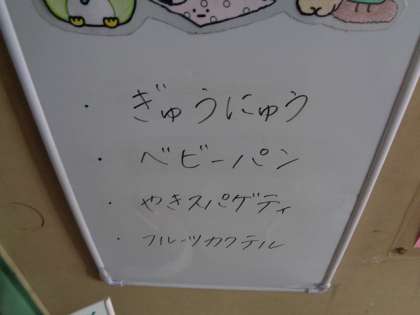 ・ぎゅうにゅう
・ベビーパン
・やきスパゲティ
・フルーツカクテル